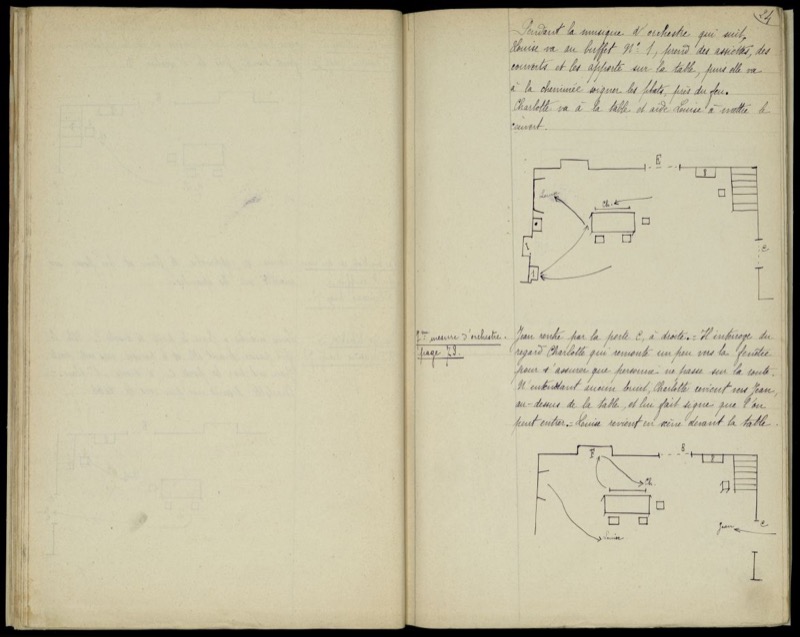 24
Pendant la musique d'orchestre qui suit,
Louise va au buffet N° 1, prend des assiettes, des
couverts et les apporte sur la table, puis elle va
à la cheminée soigner les plats, près du feu.
Charlotte va à la table et aide Louise à mettre le
couvert.
B
Louise
Ch.
C
1
mesure d'orchestre.
page 79.
Jean rentre par la porte C, à droite. = Il interroge du
regard Charlotte qui remonte un peu vers la fenêtre
pour s'assurer que personne ne passe sur la route.
N'entendant aucun bruit, Charlotte revient vers Jean,
au-dessus de la table, et lui fait signe que l'on
peut entrer. = Louise revient en scène devant la table.
F
B
Ch.
Louise
Jean
C